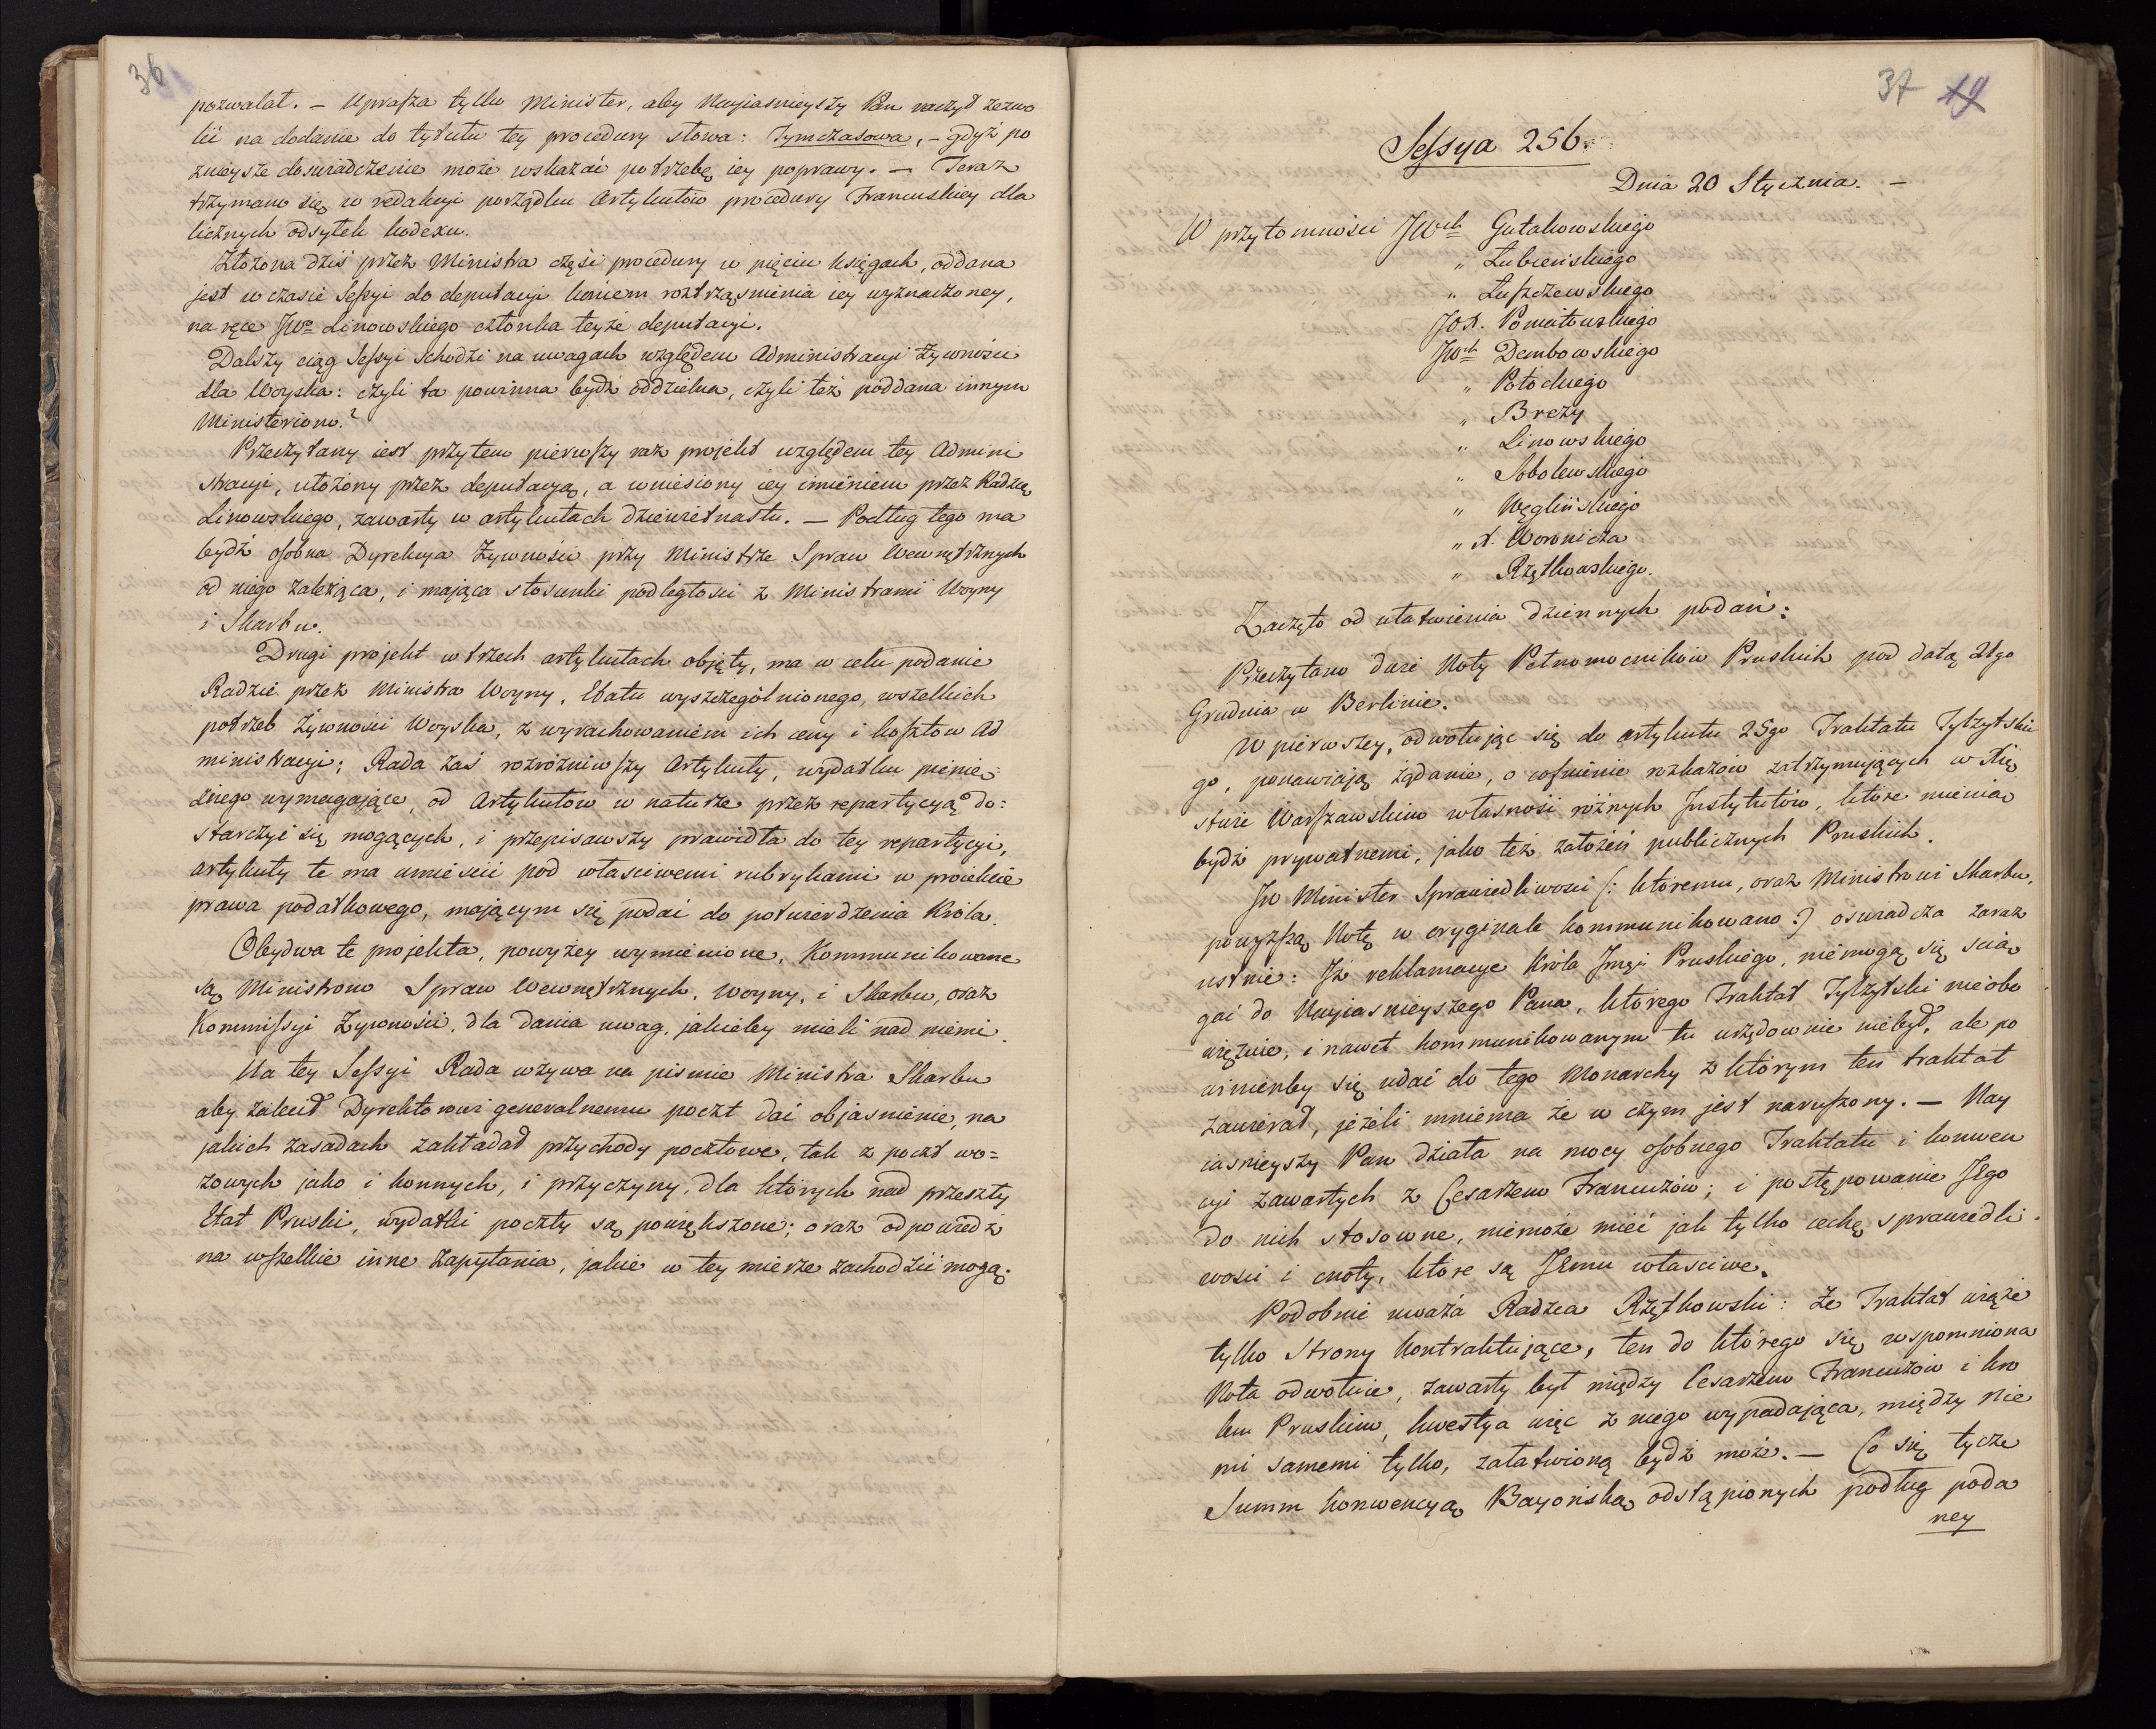 36
pozwalał. – Uprasza tylko Minister, aby Nayiasnieyszy Pan raczył zezwo
lić na dodanie do tytułu tey procedury słowa: Tymczasowa, – gdyż po
znieysze doswiadczenie może wskazać potrzebę iey poprawy. – Teraz
trzymano się w redakcyi porządku Artykułów procedury Francuskiey dla
licznych odsyłek kodexu.
Złożona dziś przez Ministra część procedury w pięciu księgach, oddana
jest w czasie Sessyi do deputacyi końcem roztrząsnienia iey wyznaczoney,
na ręce JWo Linowskiego członka teyże deputacyi.
Dalszy ciąg Sessyi schodzi na uwagach względem Administracyi żywności
dla Woyska: czyli ta powinna bydź oddzielna, czyli też poddana innym
Ministeriom?
Przeczytany iest przytem pierwszy raz projekt względem tey Admini
stracyi, ułożony przez deputacyą, a wniesiony iey imieniem przez Radzcę
Linowskiego, zawarty w artykułach dziewiętnastu. – Podług tego ma
bydź osobna Dyrekcya żywności przy Ministrze Spraw Wewnętrznych
od niego zależąca, i mająca stosunki podległosci z Ministrami Woyny
i Skarbu.
Drugi projekt w trzech artykułach objęty, ma w celu podanie
Radzie przez Ministra Woyny, Etatu wyszczególnionego, wszelkich
potrzeb żywności Woyska, z wyrachowaniem ich ceny i kosztow Ad
ministracyi; Rada zaś rozróżniwszy Artykuły, wydatku pienię
żnego wymagające, od Artykułow w naturze przez repartycyą do=
starczyć się mogących, i przepisawszy prawidła do tey repartycyi,
artykuły te ma umieścić pod własciwemi rubrykami w projekcie
prawa podatkowego, mającym się podać do potwierdzenia Króla.
Obydwa te projekta, powyżey wymienione, Kommunikowane
są Ministrom Spraw Wewnętrznych, Woyny, i Skarbu, oraz
Kommissyi Żywności, dla dania uwag, jakieby mieli nad niemi.
Na tey Sessyi Rada wzywa na pismie Ministra Skarbu
aby zalecił Dyrektorowi generalnemu poczt dać objasnienie, na
jakich zasadach zakładał przychody pocztowe, tak z poczt wo=
zowych jako i konnych, i przyczyny, dla których nad przeszły
Etat Pruski, wydatki poczty są powiększone; oraz odpowiedź
na wszelkie inne zapytania, jakie w tey mierze zachodzić mogą.
37 19
Sessya 256.
Dnia 20 Stycznia. –
W przytomności JWch Gutakowskiego
" Łubieńskiego
" Łuszczewskiego
JOX. Poniatowskiego
JWch Dembowskiego
" Potockiego
" Brezy
" Linowskiego
" Sobolewskiego
" Węglińskiego
" X. Woronicza
" Rzętkowskiego.
Zaczęto od ułatwienia dziennych podań:
Przeczytano dwie Noty Pełnomocników Pruskich pod datą 21go
Grudnia w Berlinie.
W pierwszey, odwołując się do artykułu 25go Traktatu Tylżytskie
go, ponawiają żądanie, o cofnienie rozkazów zatrzymujących w Xię
stwie Warszawskim własność różnych Instytutów, które mienią
bydź prywatnemi, jako też założeń publicznych Pruskich.
JW Minister Sprawiedliwości (: któremu, oraz Ministrowi Skarbu,
powyższą Notę w oryginale kommunikowano :) oswiadcza zaraz
ustnie: Iż reklamacye Króla Jmci Pruskiego, niemogą się ścią
gać do Nayiasnieyszego Pana, którego Traktat Tylżytski nieobo
więzuie, i nawet kommunikowanym tu urzędownie niebył, ale po
winienby się udać do tego Monarchy z którym ten traktat
zawierał, jeżeli mniema że w czym jest naruszony. – Nay
iasnieyszy Pan działa na mocy osobnego Traktatu i konwen
cyi zawartych z Cesarzem Francuzów; i postępowanie Jego
do nich stosowne, niemoże mieć jak tylko cechę sprawiedli=
wosci i cnoty, które są Jemu własciwe.
Podobnie uważa Radzca Rzętkowski: Że Traktat wiąże
tylko Strony kontraktujące, ten do którego się wspomniona
Nota odwołuie, zawarty był między Cesarzem Francuzów i kró
lem Pruskim, kwestya więc z niego wypadająca, między nie
mi samemi tylko, załatwioną bydź może. – Co się tycze
Summ konwencyą Bayońską odstąpionych podług poda
ney